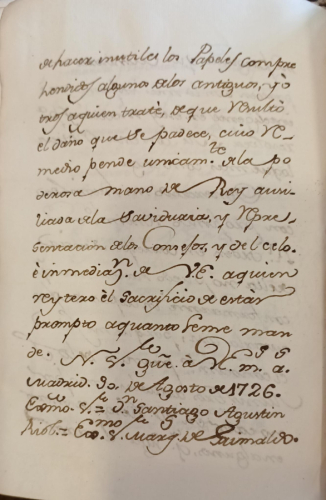 de hacer inutiles los Papeles compre
hendidos algunos de los antiguos, y ô
tros aquien traté, de que Resultò
el daño que se padece, cuio Re
medio pende unicam.te de la po
derosa mano de Rey auxi
liada de la Saviduria, y Repre
sentacion de los Consejos, y del celo
è inmediaz.n de V.E. aquien
reytero èl Sacrificio de estar
prompto aquanto seme man
de. N. S. gũe. à V. m. a.s
Madrid 30. de Agosto de 1726.
Exmo. S.r = D.n Santiago Agustin
Riol = Exmo. S.r Marq.s de Grimaldo.